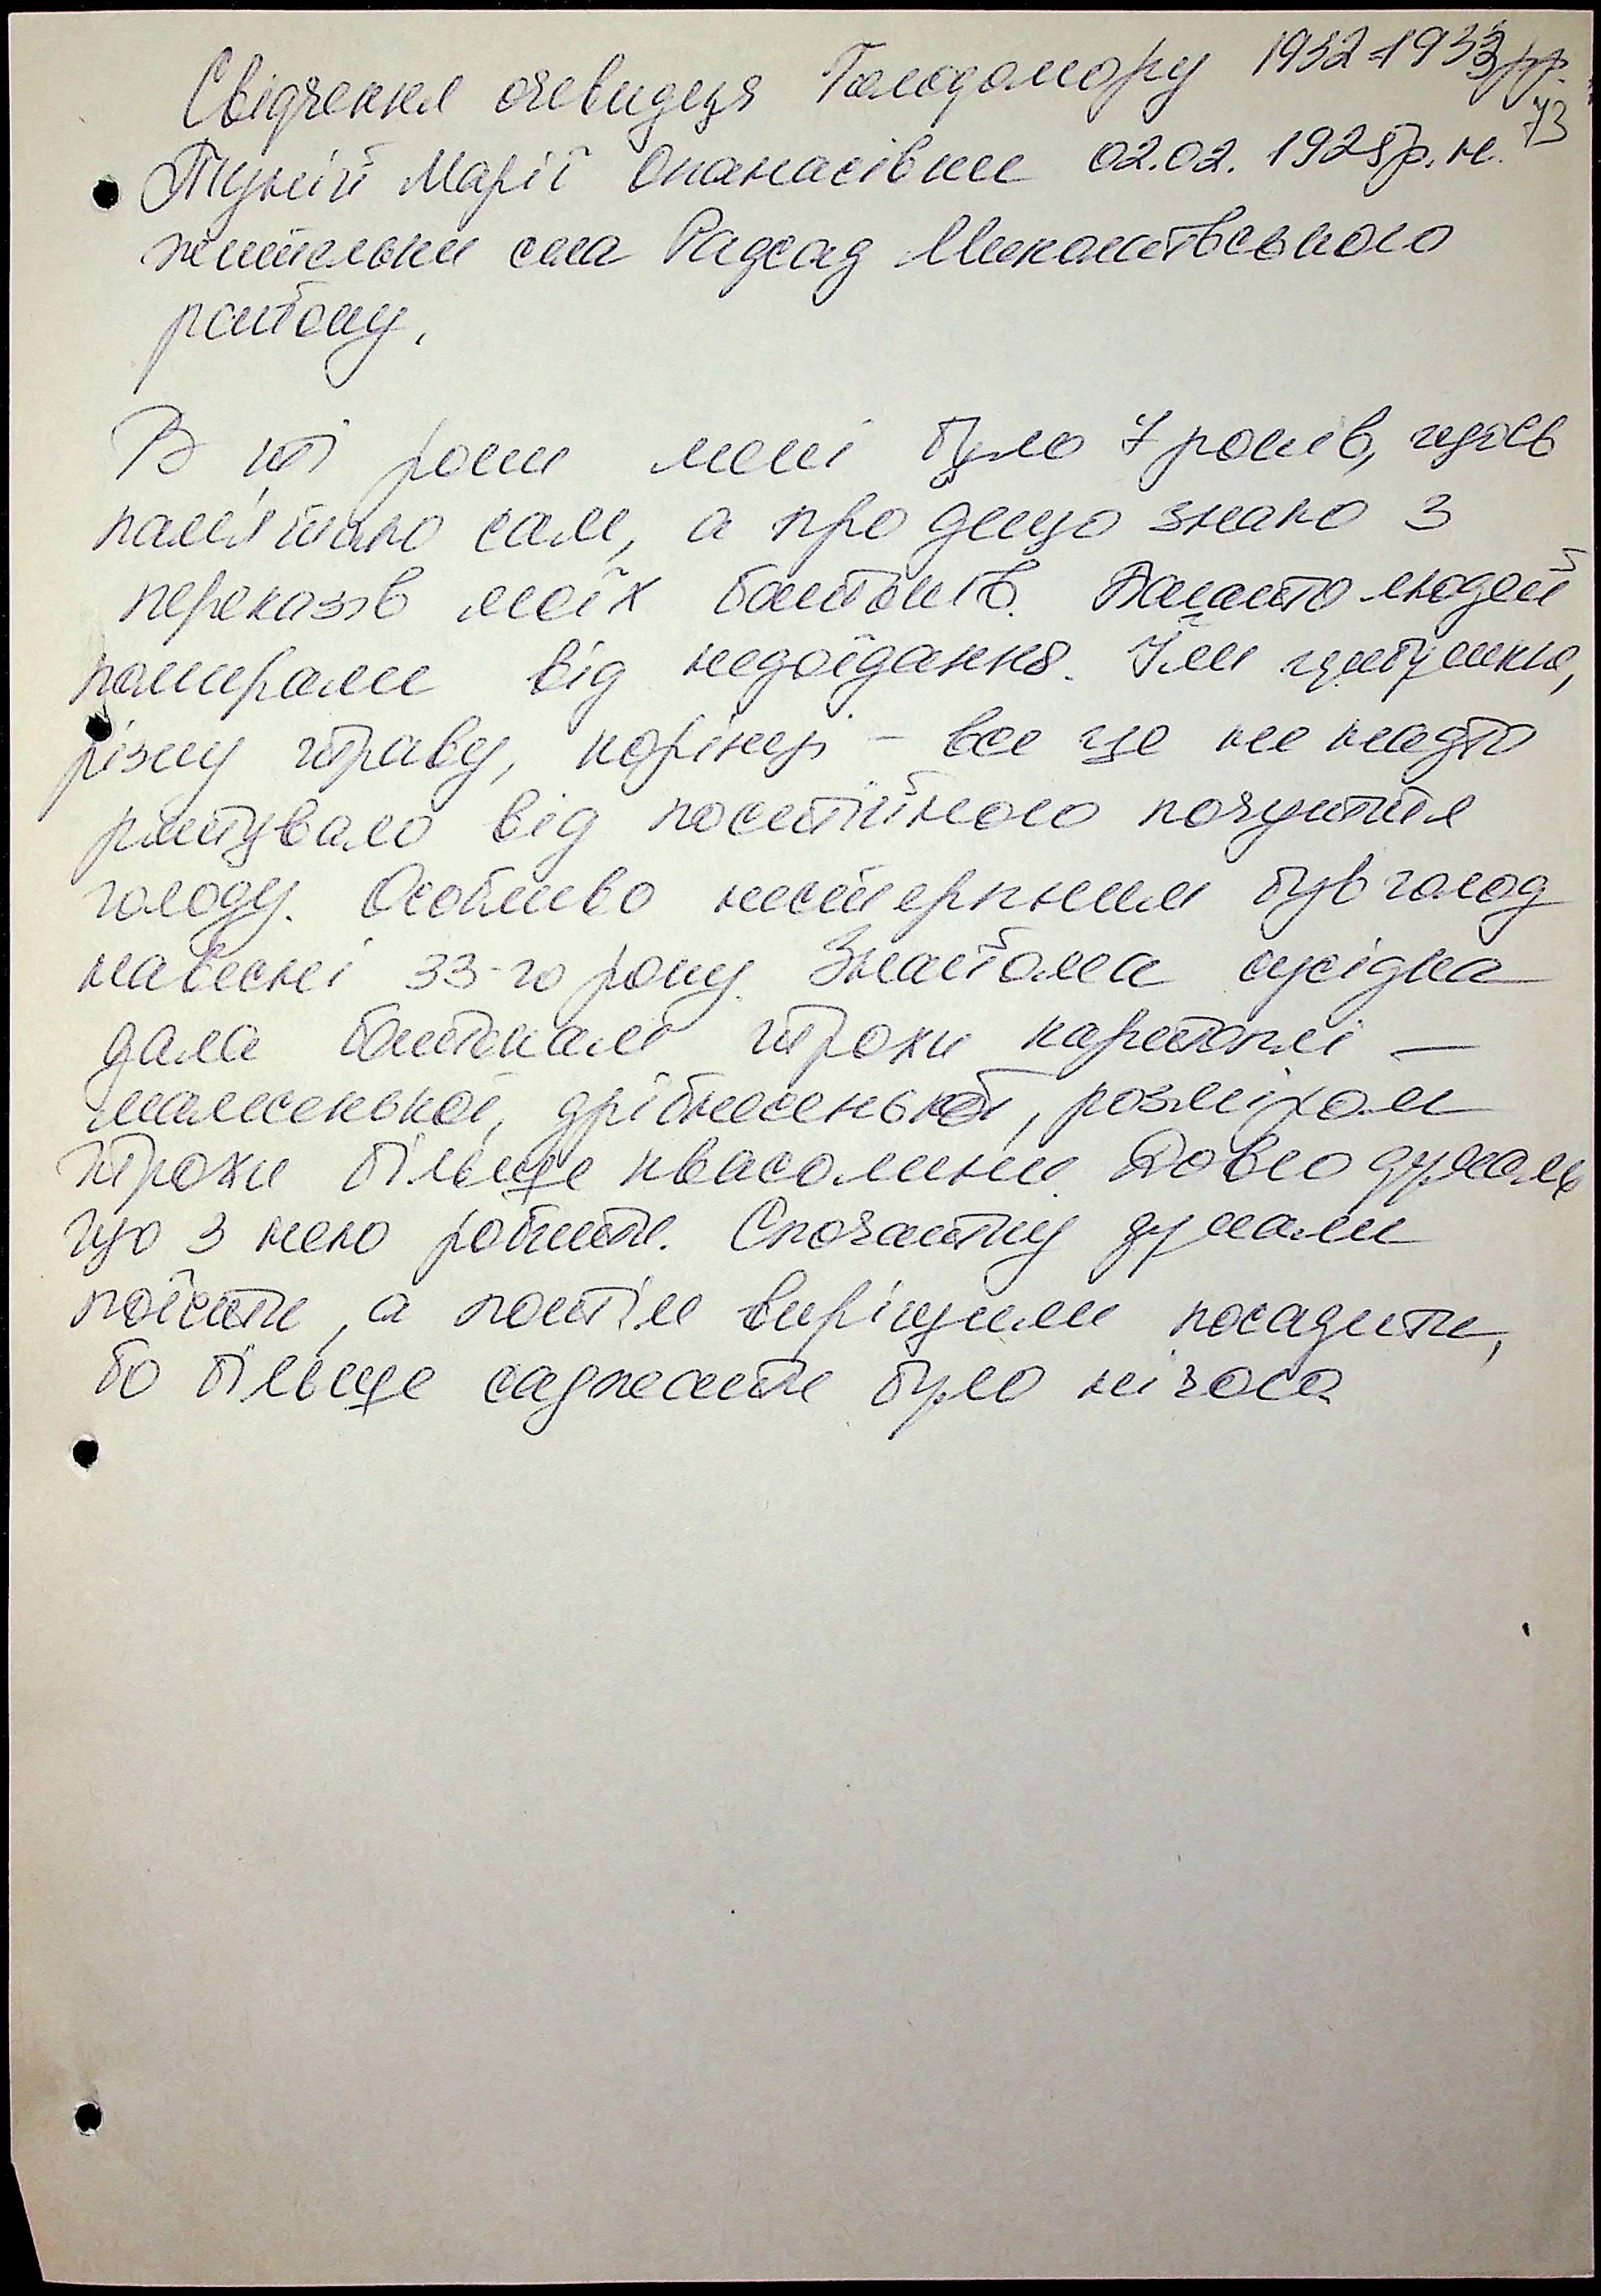 Свідчення очевидця Голодомору 1932-1933рр.
73
Тупій Марії Опанасівни 02.02.1928р.н.
жительки села Радсад Миколаївського
району.
В ті роки мені було 7 років, щось
пам'ятаю сам, а про дещо знаю з
переказів моїх батьків. Багато людей
помирали від недоїдання. Їли цибульки,
різну траву, корінці - все це не надто
рятувало від постійного почуття
голоду. Особливо нестерпним був голод
навесні 33-го року. Знайома сусідка
дала батькам трохи картоплі —
малесенької, дрібнесенької, розміхом
трохи більше квасолини. Довго думали
що з нею робити. Спочатку думали
поїсти, а потім вирішили посадити,
бо більше саджати було нічого.